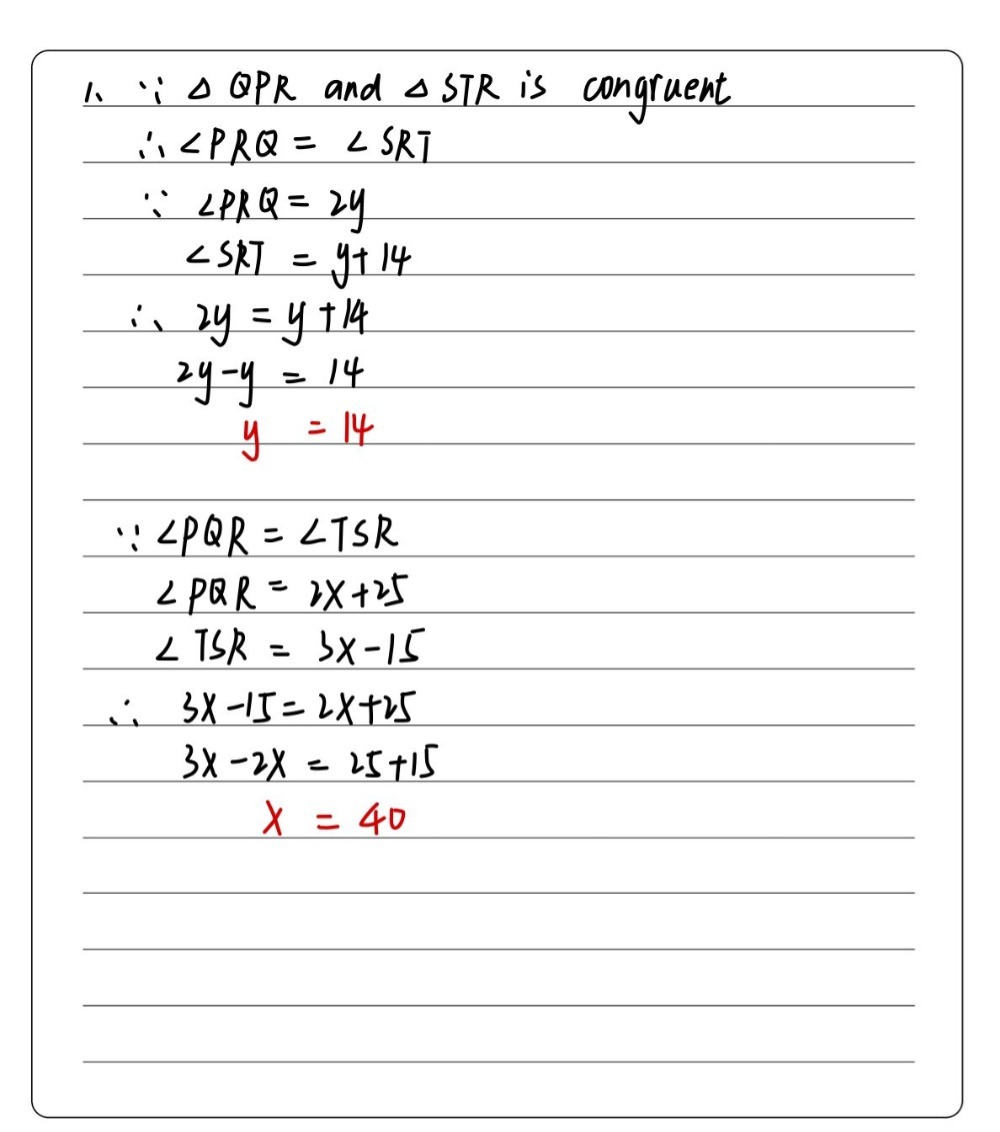 1. ∵ △ QPR and △ STR is congruent
∴ ∠PRQ = ∠SRT
∵ ∠PRQ = 2y
∠SRT = y+14
∴ 2y = y+14
2y-y = 14
y = 14
∵ ∠PQR = ∠TSR
∠PQR = 2x+25
∠TSR = 3x-15
∴ 3x-15=2x+25
3x-2x = 25+15
x = 40